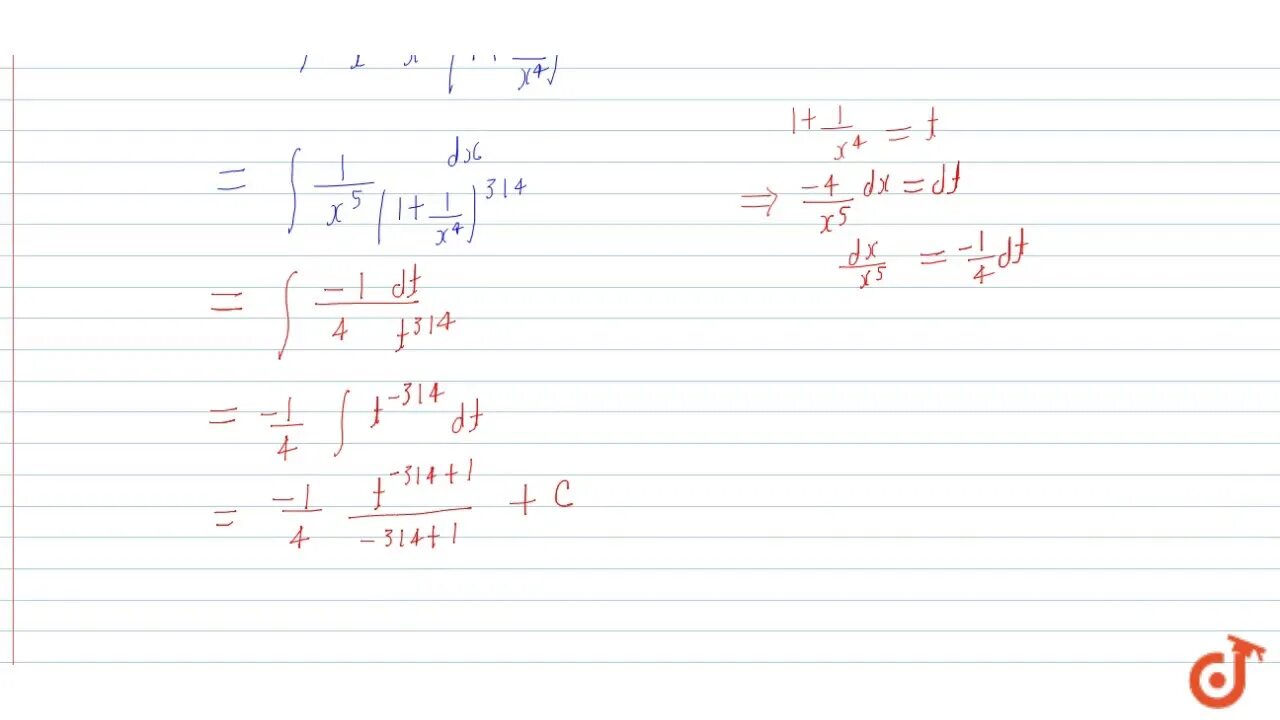 x^4)
= ∫ 1/x^5 dx/(1+1/x^4)^314
= ∫ -1/4 dt/t^314
= -1/4 ∫ t^-314 dt
= -1/4 t^(-314+1)/(-314+1) + C
1+1/x^4 = t
⇒ -4/x^5 dx = dt
dx/x^5 = -1/4 dt